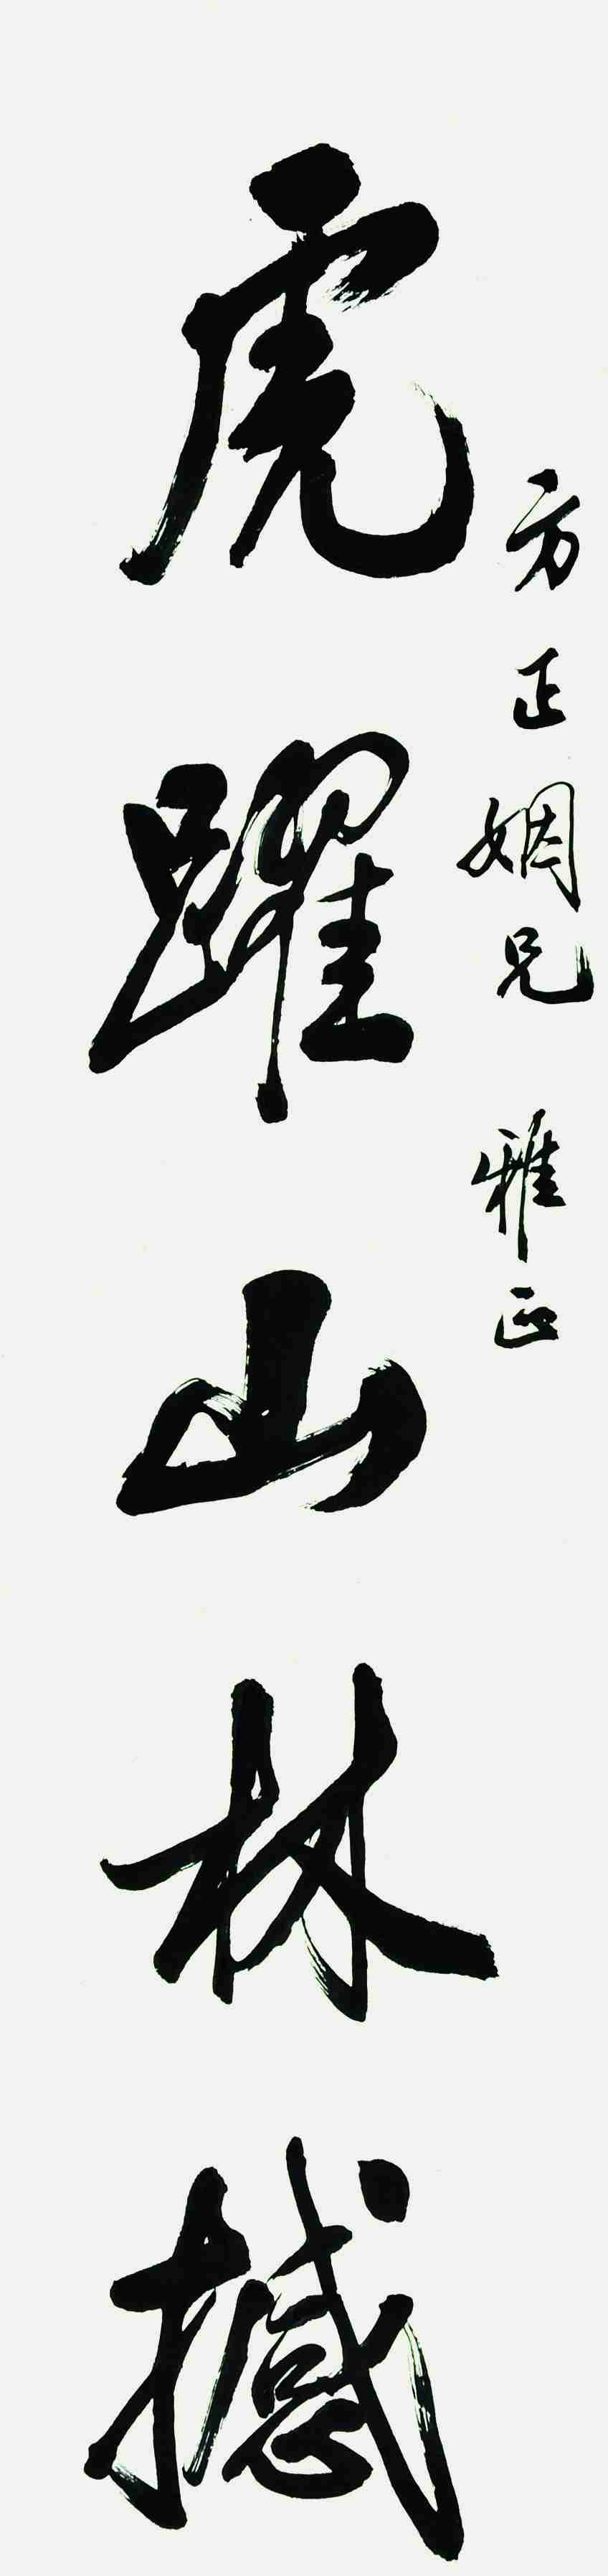 方正姻兄 雅正
虎躍山林撼